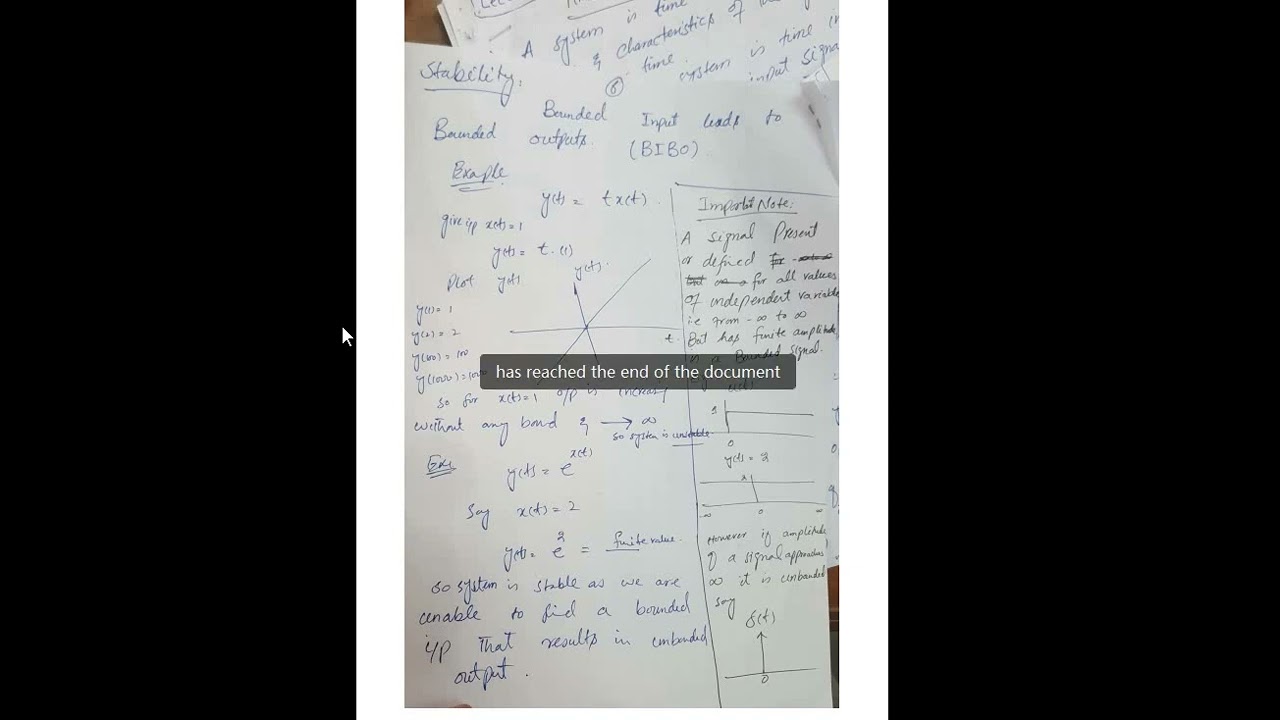 A system is time
& characteristics of
time.
system is time in
input signa
Stability.
6
Bounded Bounded Input leads to
outputs. (BIBO)
Example
y(t) = t x(t).
give i/p x(t)=1
y(t) = t.(1)
Plot y(t)
y(t).
t.
y(1) = 1
y(2) = 2
y(100) = 100
y(1000) = 1000
has reached the end of the document
So for x(t)=1 o/p is increasy
without any bond & → ∞
so system is unstable.
Exe
y(t) = e^x(t)
Say x(t) = 2
y(t) = e^2 = finite value.
so system is stable as we are
unable to find a bounded
i/p That results in unbonded
output.
Important Note:
A signal Present
or defined
for all values
of independent variable
i.e from -∞ to ∞
But has finite amplitude
is a Bounded Signal.
u(t)
1
0
y(t) = 2
2
-∞ 0 ∞
However if amplitude
of a signal approaches
∞ it is unbanded
say
δ(t)
0